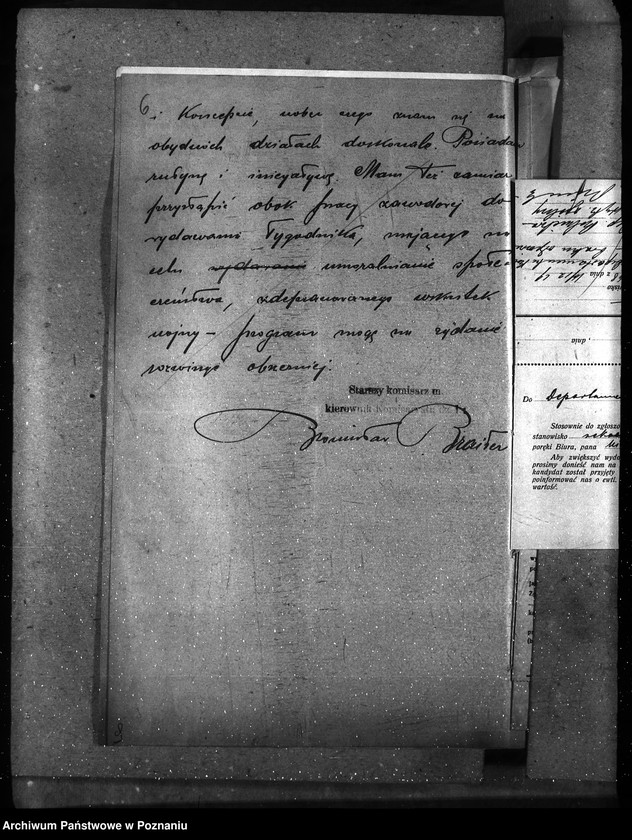 6
i Koncepcie, wobec czego znam się na
obydwóch działach doskonale. Posiadam
rutynę i inicyatywę. Mam też zamiar
przystąpić obok pracy zawodowej do
wydawania Tygodnika, mającego na
celu wydawanie umoralnianie społe-
czeństwa, zdeprawowanego wskutek
wojny – program mogę na żądanie
rozwinąć obszerniej.
Starszy komisarz m.
kierownik Komisarjatu
Bronisław
Do Departame
Stosownie do zgłosze
stanowisko
poręki Biura, pana
Aby zwiększyć wydo
prosimy donieść nam na
kandydat został przyjęty
poinformować nas o ewtl.
wartość.
dnia
Archiwum Państwowe w Poznaniu